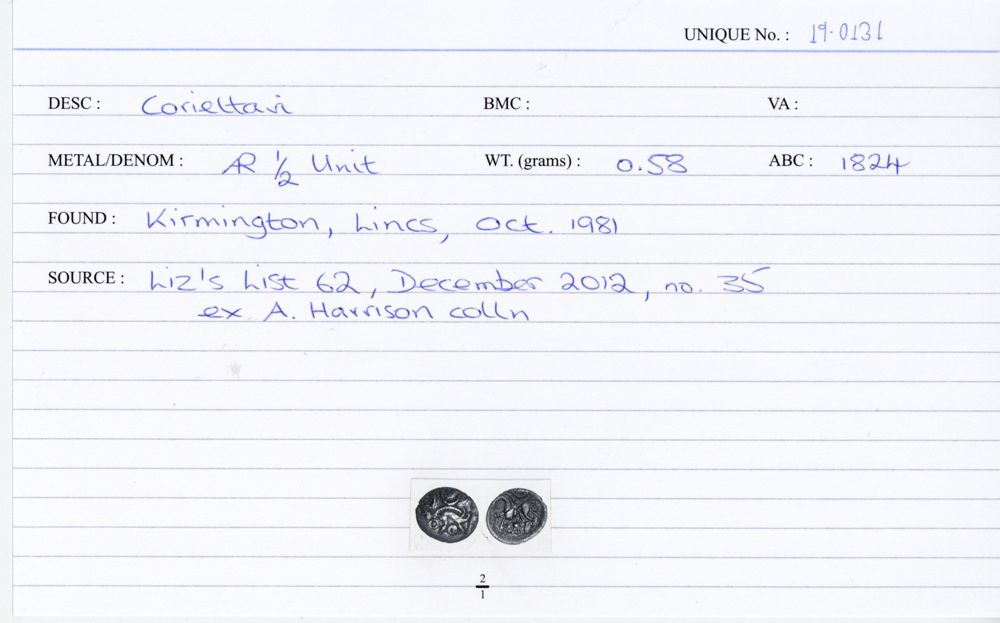 UNIQUE No. : 19-0131
DESC : Corieltavi BMC : VA :
METAL/DENOM : AR 1/2 Unit WT. (grams) : 0.58 ABC : 1824
FOUND : Kirmington, Lincs, Oct. 1981
SOURCE : Liz's List 62, December 2012, no. 35
ex A. Harrison colln
2
1